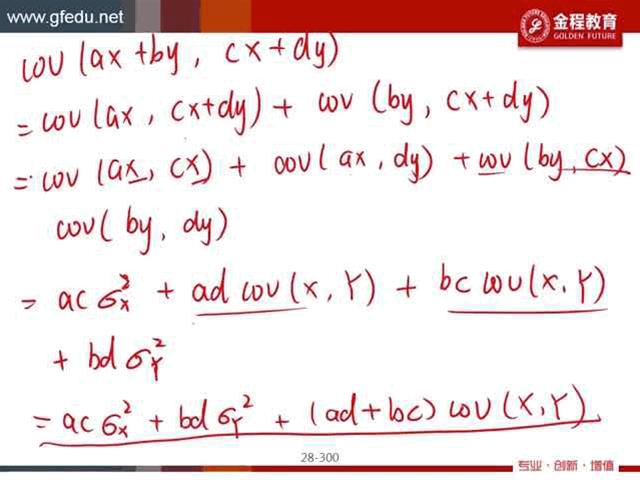 www.gfedu.net
金程教育
GOLDEN FUTURE
cov(ax+by, cx+dy)
=cov(ax, cx+dy) + cov(by, cx+dy)
=cov(ax, cx) + cov(ax, dy) + cov(by, cx)
cov(by, dy)
= acσx² + ad cov(x, Y) + bc cov(x, Y)
+ bdσY²
= acσx² + bdσY² + (ad+bc) cov(X, Y)
28-300
专业·创新·增值